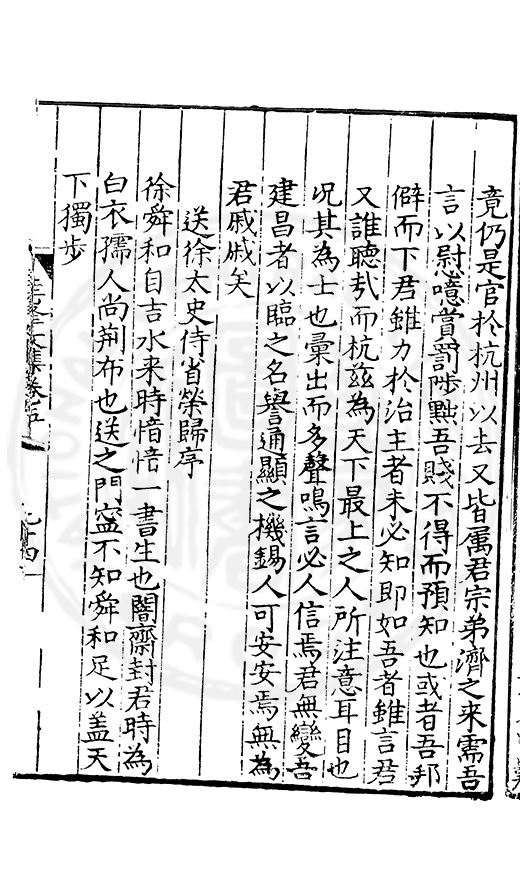 竟仍是官於杭州以去又皆属君宗弟濟之来需吾
言以慰噫賞罰陟黜吾賤不得而預知也或者吾邦
僻而下君雖力於治主者未必知即如吾者雖言君
又誰聽㢤而杭兹為天下最上之人所注意耳目也
况其為士也彙出而多聲鳴言必人信焉君無變吾
建昌者以臨之名譽通顯之機錫人可安安焉無為
君戚戚矣
送徐太史侍省榮歸序
徐舜和自吉水来時愔愔一書生也闇齋封君時為
白衣孺人尚荆布也送之門寔不知舜和足以盖天
下獨步